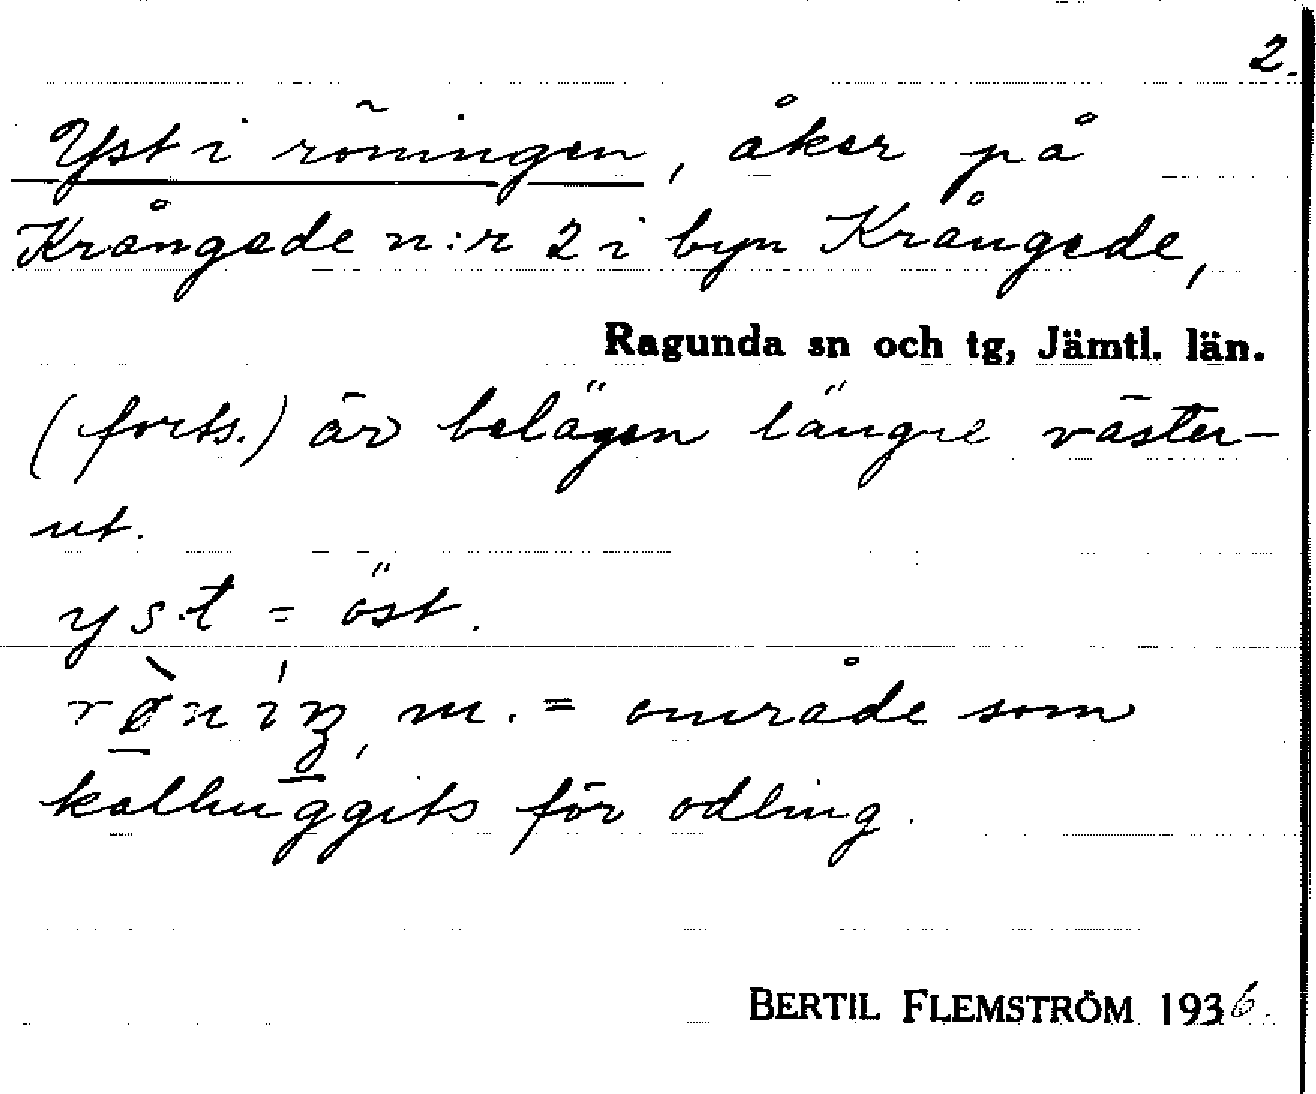 2.
Yst i röningen, åker på
Krångede n:r 2 i byn Krångede,
Ragunda sn och tg, Jämtl. län.
(forts.) är belägen längre väster-
ut.
yst = öst.
rø̀níŋ, m. = område som
kalhuggits för odling.
BERTIL FLEMSTRÖM 1936.